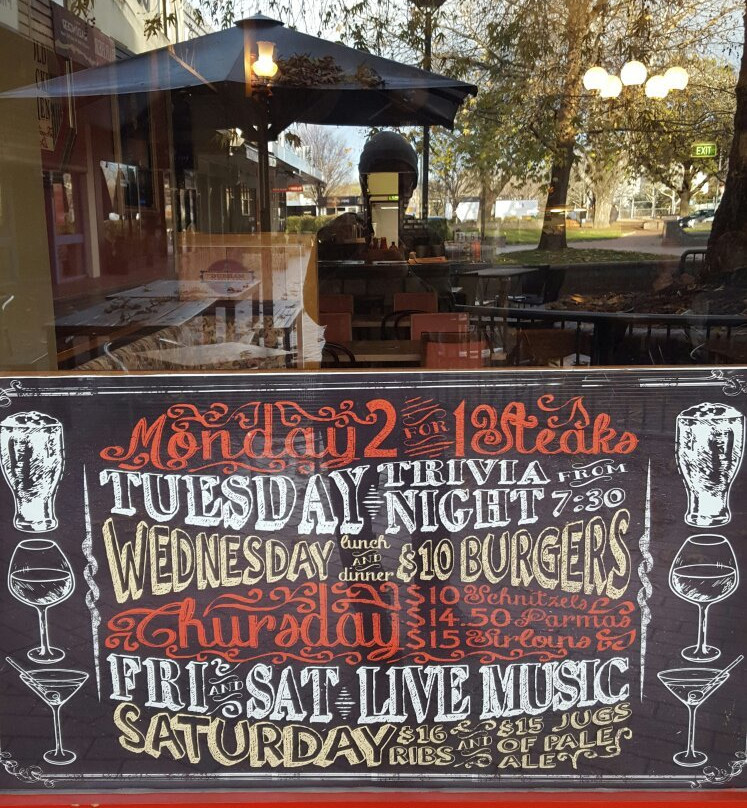 EXIT
Monday 2 FOR 1 Steaks
TUESDAY TRIVIA NIGHT FROM 7:30
WEDNESDAY lunch AND dinner $10 BURGERS
Thursday $10 Schnitzels
$14.50 Parmas
$15 Sirloins
FRI AND SAT LIVE MUSIC
SATURDAY $16 RIBS AND $15 JUGS OF PALE ALE